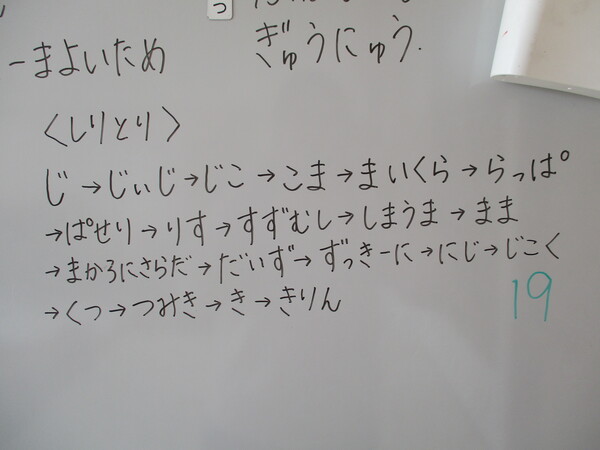 っ
ぎゅうにゅう.
-まよいため
〈しりとり〉
じ→じぃじ→じこ→こま→まいくら→らっぱ
→ぱせり→りす→すずむし→しまうま→まま
→まかろにさらだ→だいず→ずっきーに→にじ→じこく
→くつ→つみき→き→きりん
19